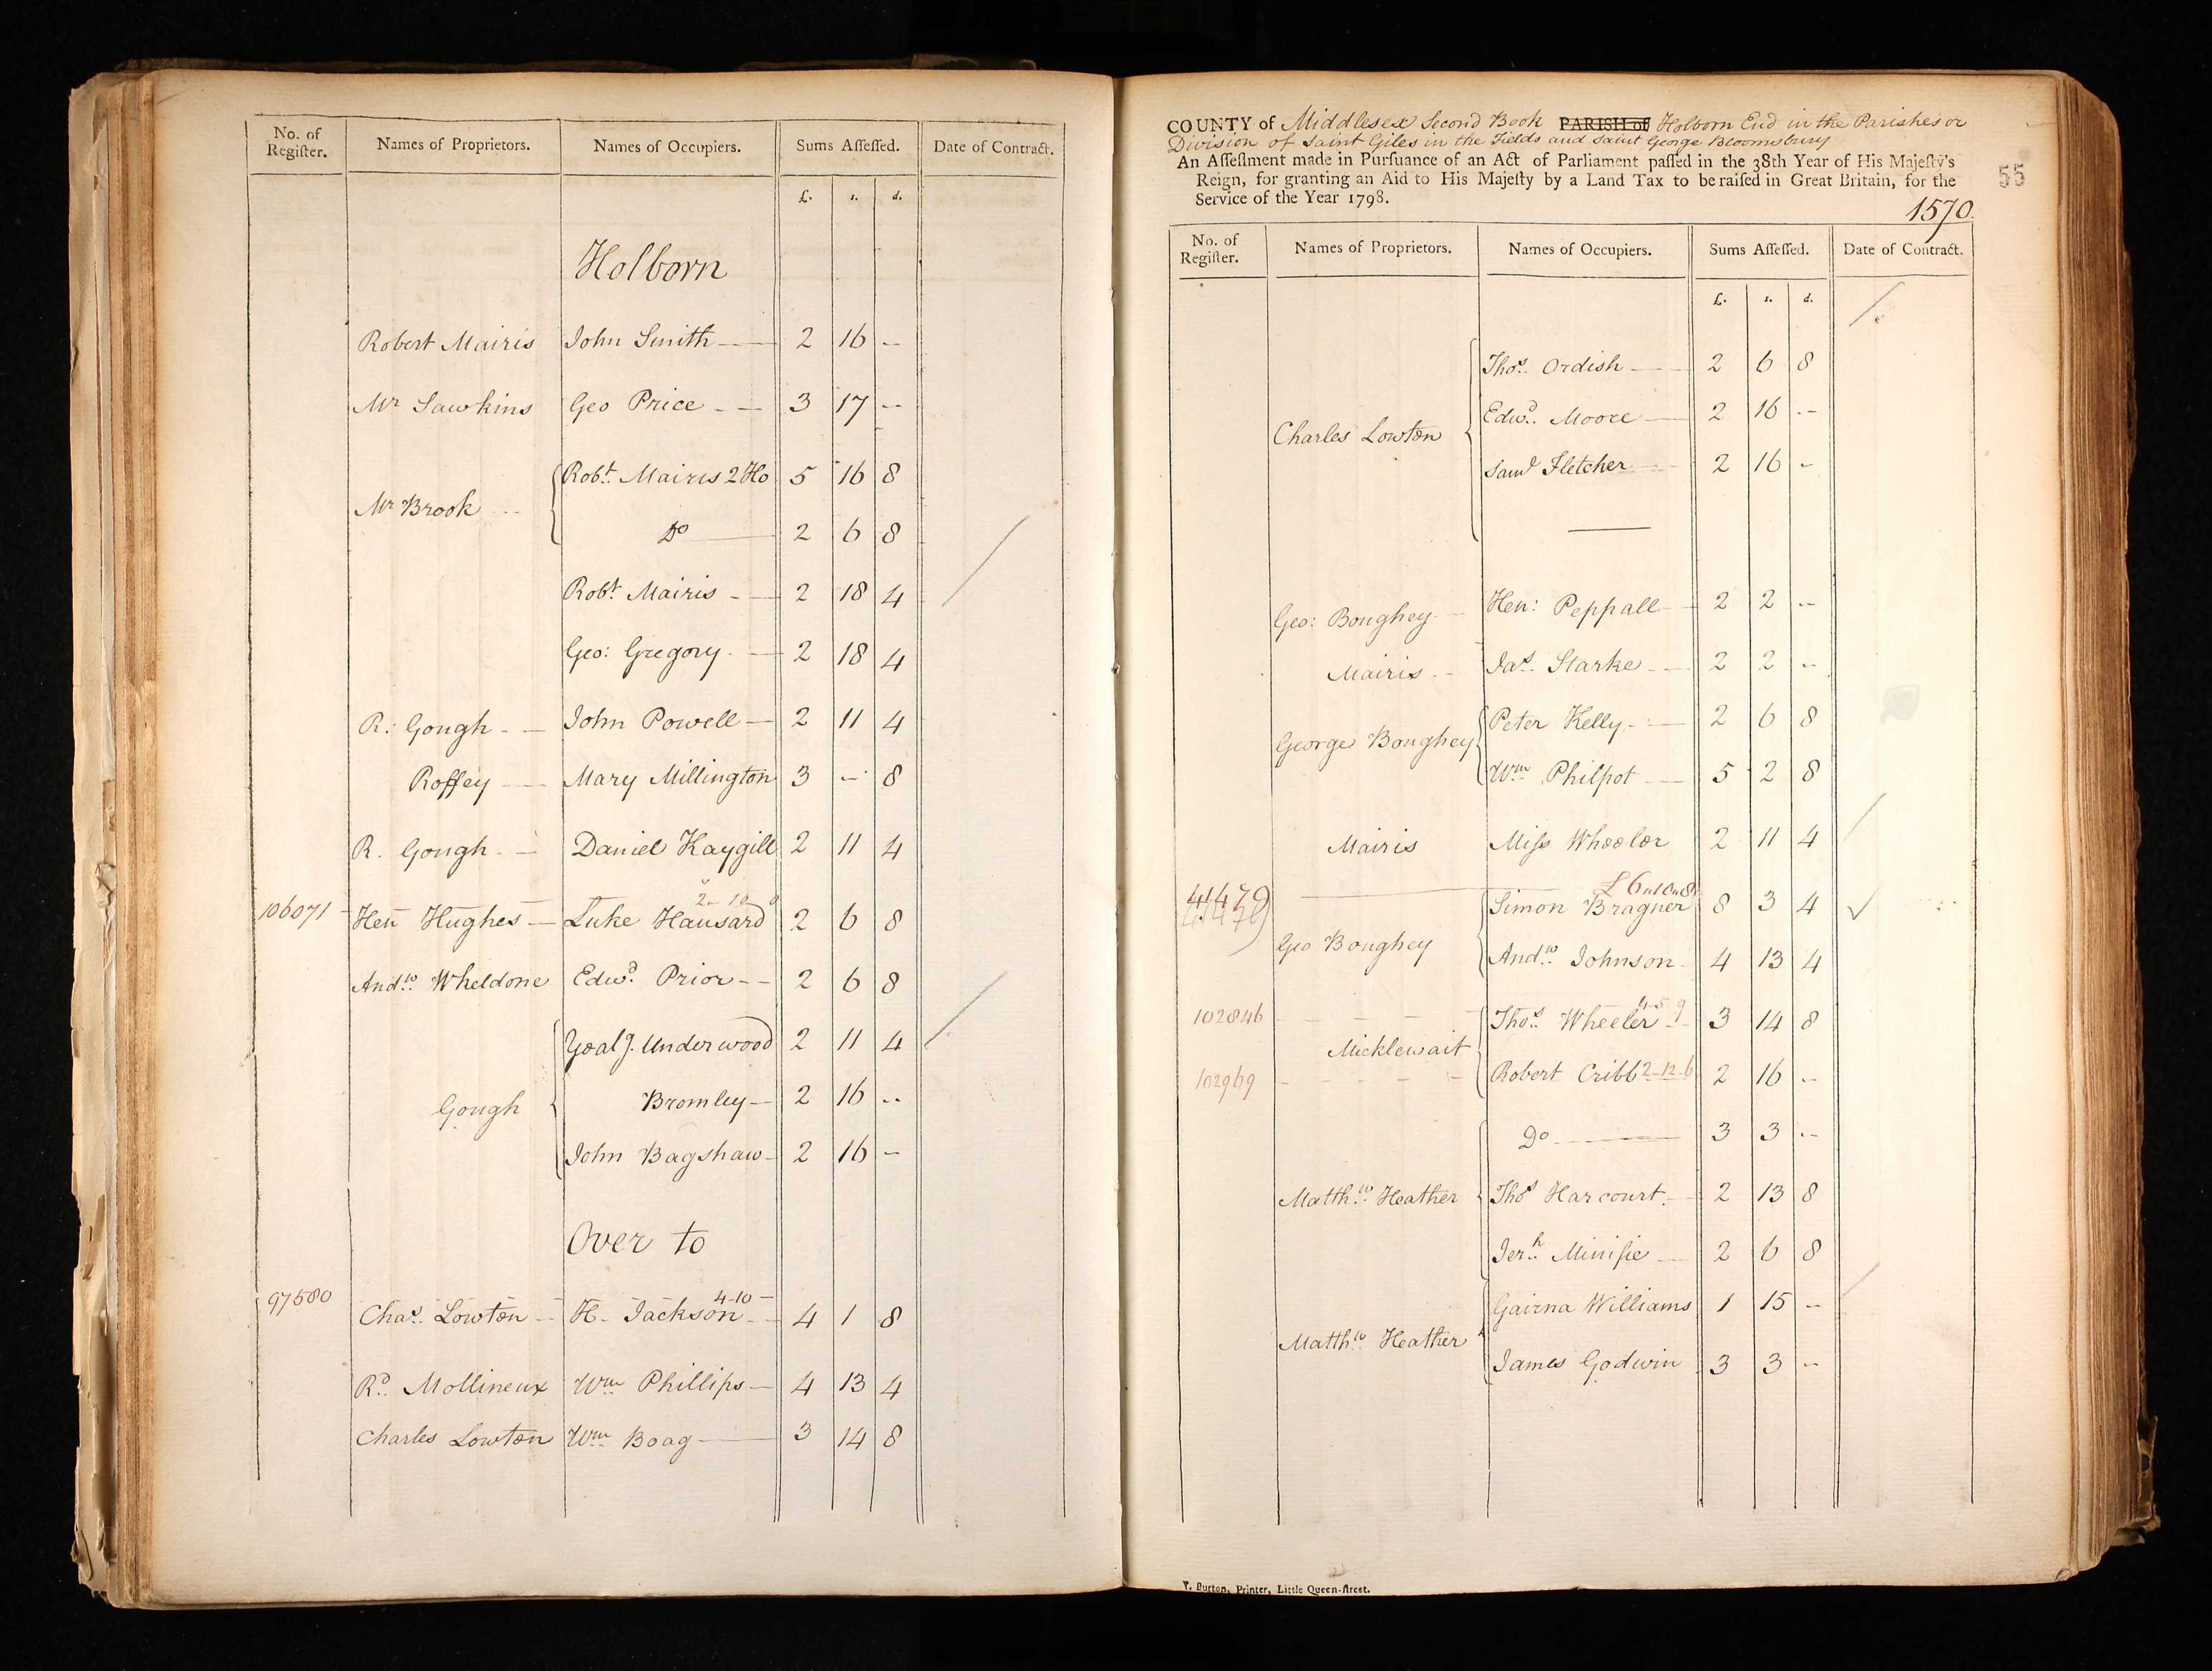 No. of Register. Names of Proprietors. Names of Occupiers. Sums Assessed. Date of Contract.
£. s. d.
Holborn
Robert Mairis John Smith 2 16 -
Mr Sawkins Geo Price 3 17 -
Mr Brook Robt. Mairis 2 Ho 5 16 8
Do 2 6 8
Robt. Mairis 2 18 4
Geo: Gregory 2 18 4
R: Gough John Powell 2 11 4
Roffey Mary Millington 3 - 8
R. Gough Daniel Kaygill 2 11 4
2-10 0
106071 Hen Hughes Luke Hansard 2 6 8
Andw. Wheldone Edwd. Prior 2 6 8
J. Underwood 2 11 4
Gough Bromley 2 16 -
John Bagshaw 2 16 -
Over to
97580 4-10 -
Chas. Lowten H. Jackson 4 1 8
Rd. Mollineux Wm Phillips 4 13 4
Charles Lowten Wm Boag 3 14 8
COUNTY of Middlesex Second Book PARISH of Holborn End in the Parishes or
Division of Saint Giles in the Fields and Saint George Bloomsbury
An Assessment made in Pursuance of an Act of Parliament passed in the 38th Year of His Majesty's
Reign, for granting an Aid to His Majesty by a Land Tax to be raised in Great Britain, for the
Service of the Year 1798.
55
1570
No. of Register. Names of Proprietors. Names of Occupiers. Sums Assessed. Date of Contract.
£. s. d.
Thos. Ordish 2 6 8
Charles Lowten Edwd. Moore 2 16 -
Saml Fletcher 2 16 -
Geo: Boughey Hen: Peppall 2 2 -
Mairis Jas. Starke 2 2 -
George Boughey Peter Kelly 2 6 8
Wm Philpot 5 2 8
Mairis Miss Wheeler 2 11 4
41479 Simon Bragner 8 3 4
41479
Geo Boughey Andw. Johnson 4 13 4
4-5-9
102846 Thos. Wheeler 3 14 8
Micklewait
102969 Robert Cribb 2-12-6 2 16 -
Do 3 3 -
Matthw. Heather Thos Harcourt 2 13 8
Jerh. Minifie 2 6 8
Gairna Williams 1 15 -
Matthw. Heather
James Godwin 3 3 -
T. Burton, Printer, Little Queen-street.